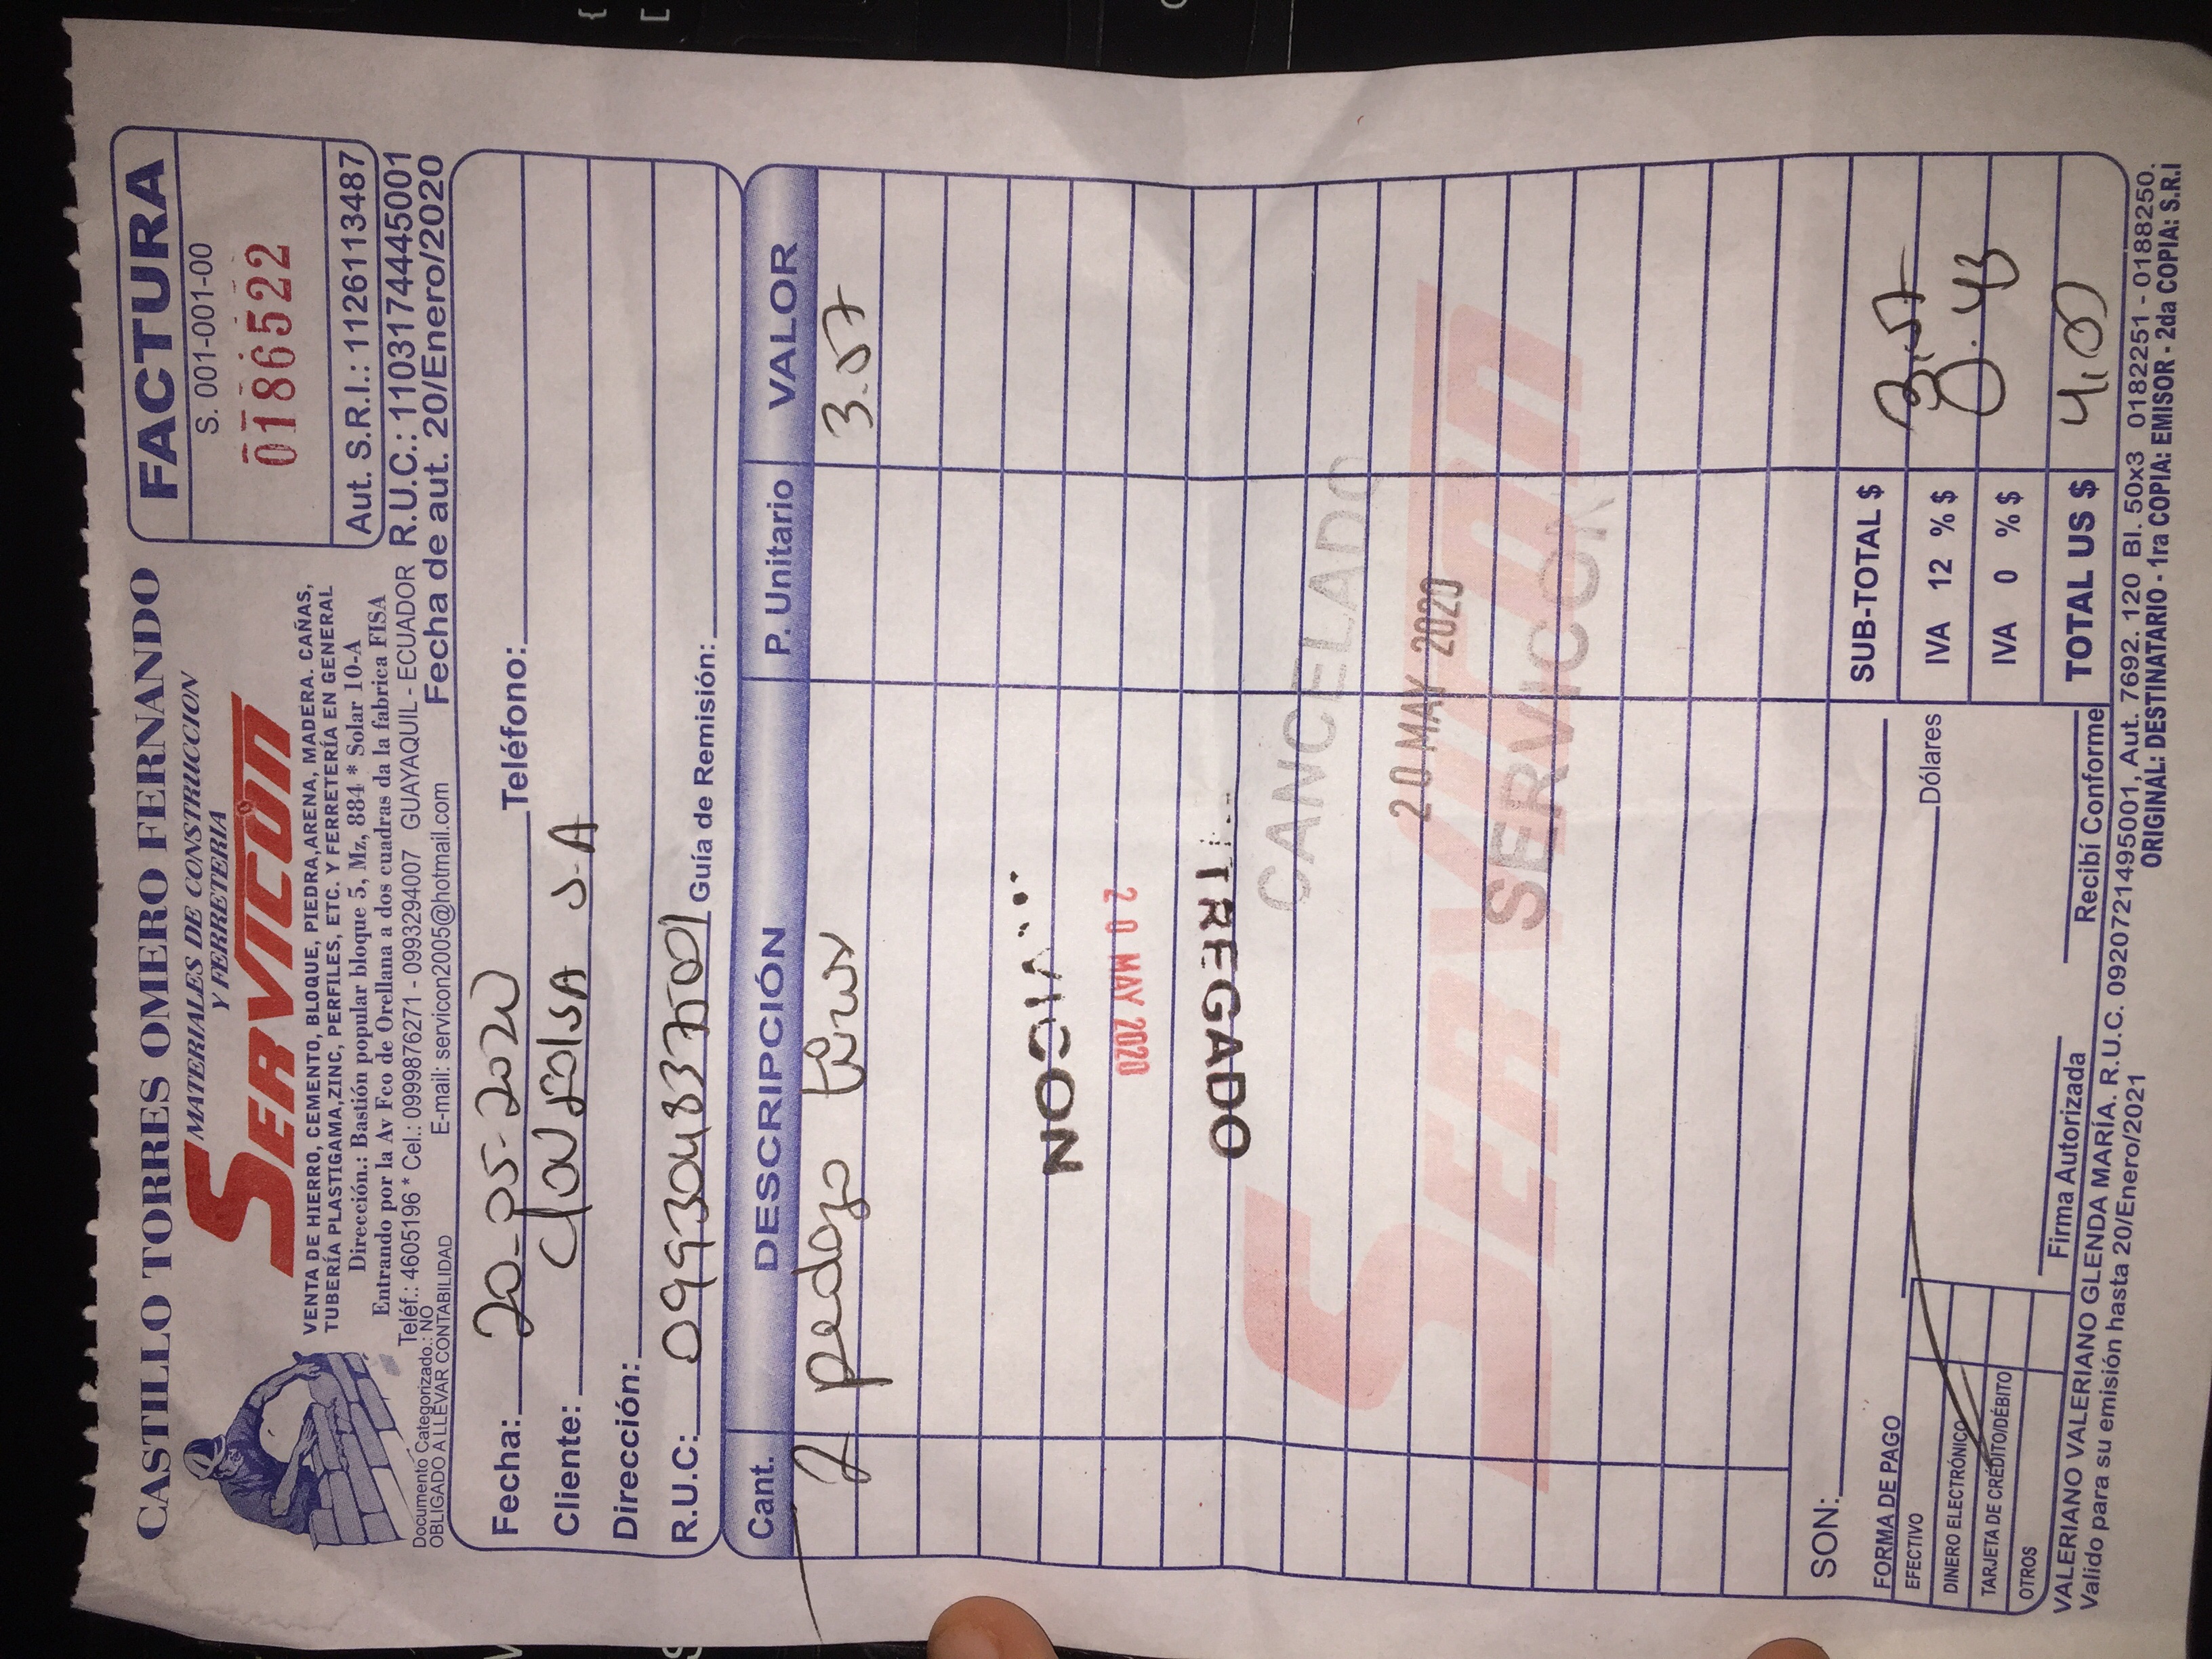 CASTILLO TORRES OMERO FERNANDO
MATERIALES DE CONSTRUCCION
Y FERRETERIA
SERVICON
VENTA DE HIERRO, CEMENTO, BLOQUE, PIEDRA,ARENA, MADERA. CAÑAS,
TUBERÍA PLASTIGAMA,ZINC, PERFILES, ETC. Y FERRETERÍA EN GENERAL
Dirección.: Bastión popular bloque 5, Mz, 884 * Solar 10-A
Entrando por la Av Fco de Orellana a dos cuadras da la fabrica FISA
Teléf.: 4605196 * Cel.: 0999876271 - 0993294007 GUAYAQUIL - ECUADOR
Documento Categorizado.: NO
OBLIGADO A LLEVAR CONTABILIDAD
E-mail: servicon2005@hotmail.com
FACTURA
S. 001-001-00
0186522
Aut. S.R.I.: 1126113487
R.U.C.: 1103174445001
Fecha de aut. 20/Enero/2020
Fecha: 20-05-2020 Teléfono:
Cliente: S.A
Dirección:
R.U.C: 0993048375001 Guía de Remisión:
Cant. DESCRIPCIÓN P. Unitario VALOR
2 pedazo 3.57
VICON
20 MAY 2020
TREGADO
CANCELADO
20 MAY 2020
SERVICON
SERVICON
SON:
Dólares
FORMA DE PAGO
EFECTIVO
DINERO ELECTRÓNICO
TARJETA DE CRÉDITO/DÉBITO
OTROS
Firma Autorizada
Recibí Conforme
SUB-TOTAL $ 3.57
IVA 12 % $ 0.43
IVA 0 % $
TOTAL US $ 4,00
VALERIANO VALERIANO GLENDA MARÍA. R.U.C. 0920721495001, Aut. 7692. 120 Bl. 50x3 0182251 - 0188250.
Valido para su emisión hasta 20/Enero/2021
ORIGINAL: DESTINATARIO - 1ra COPIA: EMISOR - 2da COPIA: S.R.I